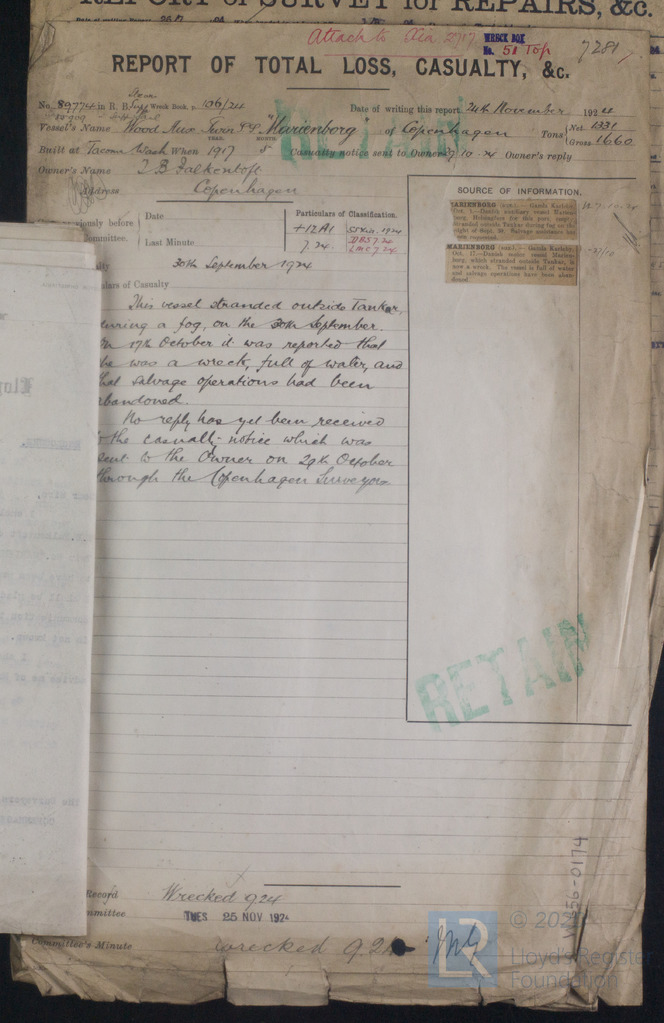 REPORT of SURVEY for REPAIRS, &c.
Attach to
WRECK BOX
No. 51 Top
7281
REPORT OF TOTAL LOSS, CASUALTY, &c.
No. 89774 in R. B. Wreck Book, p. 106/24
Date of writing this report 24th November 1924
Vessel's Name Wood Aux Twin "Marienborg" of Copenhagen Tons Net 1331
Gross 1660
Built at Tacoma Wash When YEAR 1917 MONTH 5 Casualty notice sent to Owner 29.10.24 Owner's reply
Owner's Name I B Falkentoft
Address Copenhagen
RETAIN
eviously before
ommittee.
Date
Last Minute
Particulars of Classification.
+12A1
7.24
DBS 7.24
LMC 7.24
SOURCE OF INFORMATION.
MARIENBORG (aux.).—Gamla Karleby,
MARIENBORG (aux.).—Gamla Karleby,
Oct. 17.—Danish motor vessel Marienborg, which stranded outside Tankar, is now a wreck. The vessel is full of water and salvage operations have been abandoned.
30th September 1924
lars of Casualty
This vessel stranded outside Tankar,
during a fog, on the 30th September.
On 17th October it was reported that
she was a wreck, full of water, and
that salvage operations had been
abandoned.
No reply has yet been received
to the casualty notice which was
sent to the Owner on 29th October
through the Copenhagen Surveyors
RETAIN
Record Wrecked 9.24
mmittee TUES 25 NOV 1924
Committee's Minute wrecked 9.24
56-0174
LR
Lloyd's Register
Foundation